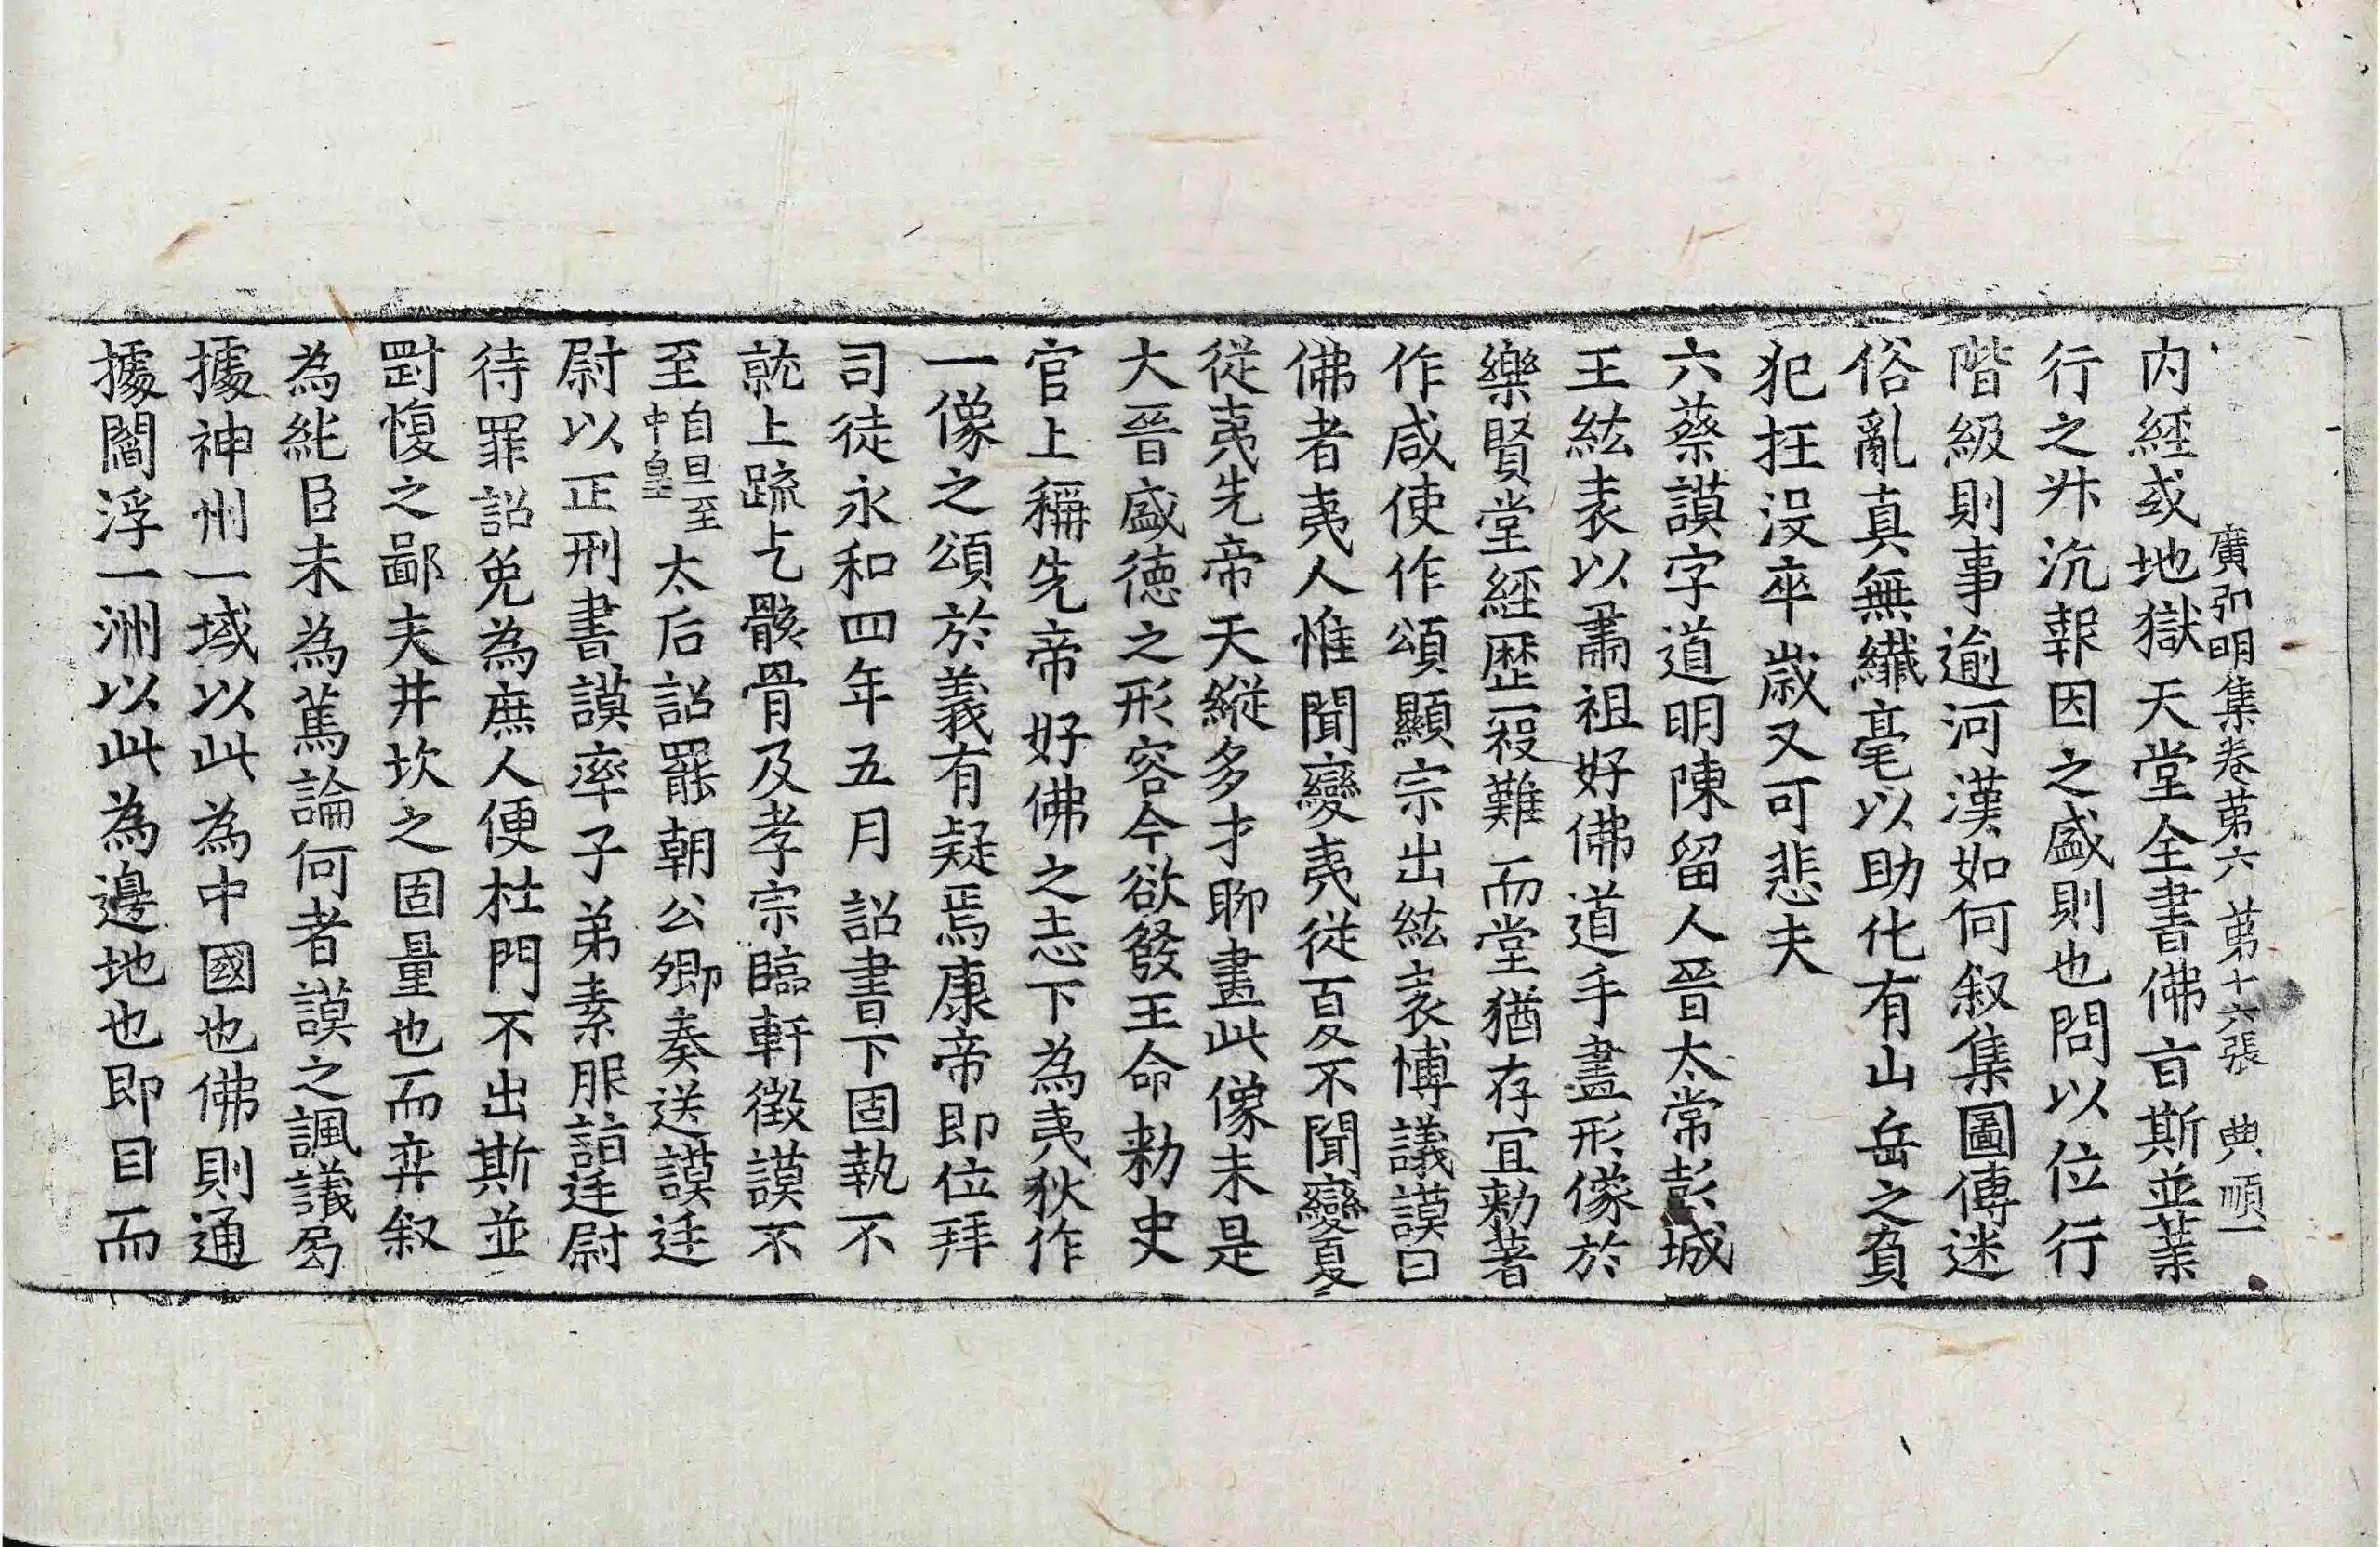 廣弘明集卷苐六 苐十六張 典 順一
内經或地獄天堂全書佛言斯並業
行之𠦑沉報因之盛則也問以位行
階級則事逾河漢如何叙集圖傳迷
俗亂真無纎毫以助化有山岳之負
犯抂没卒歲又可悲夫
六蔡謨字道明陳留人晉太常彭城
王紘表以肅祖好佛道手畫形像於
樂賢堂經歴㓂難而堂猶存冝勑著
作咸使作頌顯宗出紘表博議謨曰
佛者夷人惟聞變夷從夏不聞變夏
從夷先帝天縱多才聊畫此像未是
大晉盛德之形容今欲發王命勑史
官上稱先帝好佛之志下為夷狄作
一像之頌於義有疑焉康帝即位拜
司徒永和四年五月詔書下固執不
就上疏乞骸骨及孝宗臨軒徵謨不
至自旦至中皇太后詔罷朝公卿奏送謨廷
尉以正刑書謨率子弟素服詣廷尉
待罪詔免為庶人便杜門不出斯並
剛愎之鄙夫井坎之固量也而弈叙
為純臣未為篤論何者謨之諷議局
據神州一域以此為中國也佛則通
據閻浮一洲以此為邊地也即目而